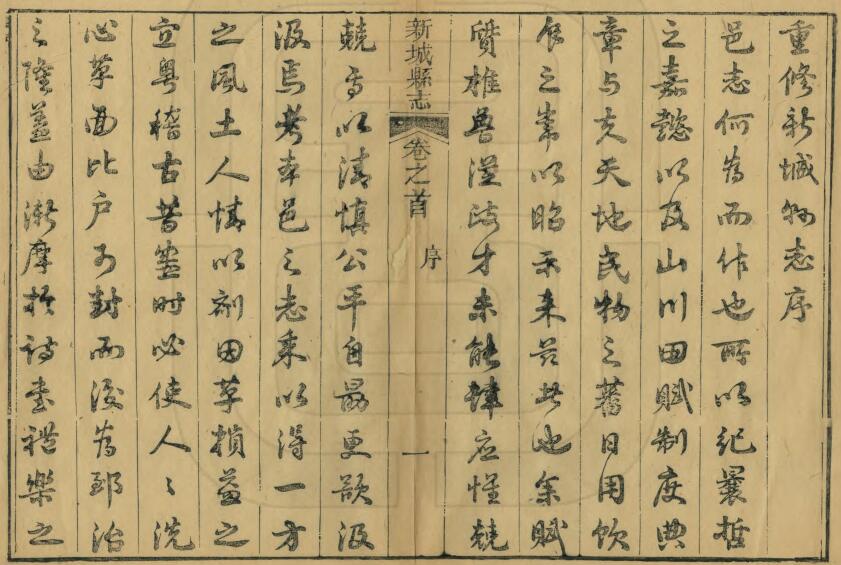 重修新城縣志序
邑志何為而作也所以紀曩哲
之嘉懿以及山川田賦制度典
章与夫天地民物之蕃日用飲
食之常以昭示来茲者也余賦
質椎魯深誇才未能肆应惟兢
新城縣志 卷之首 序 一
兢焉以清慎公平自勗更欲汲
汲焉考本邑之志乘以得一方
之風土人情以劑因革損益之
宜粤稽古昔盛时必使人〻洗
心革面比户可封而後為郅治
之隆蓋由漸摩於詩書禮樂之